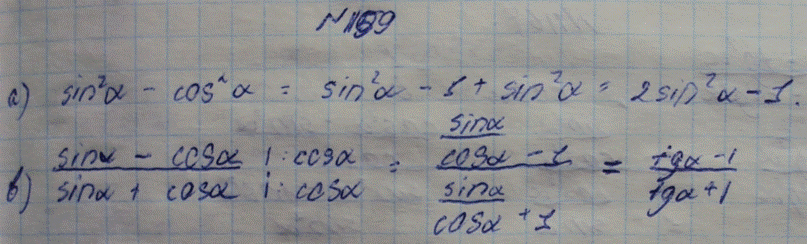 N 1159
а) sin²α - cos²α = sin²α - 1 + sin²α = 2sin²α - 1.
в) (sinα - cosα |:cosα) / (sinα + cosα |:cosα) = (sinα/cosα - 1) / (sinα/cosα + 1) = (tgα - 1) / (tgα + 1)